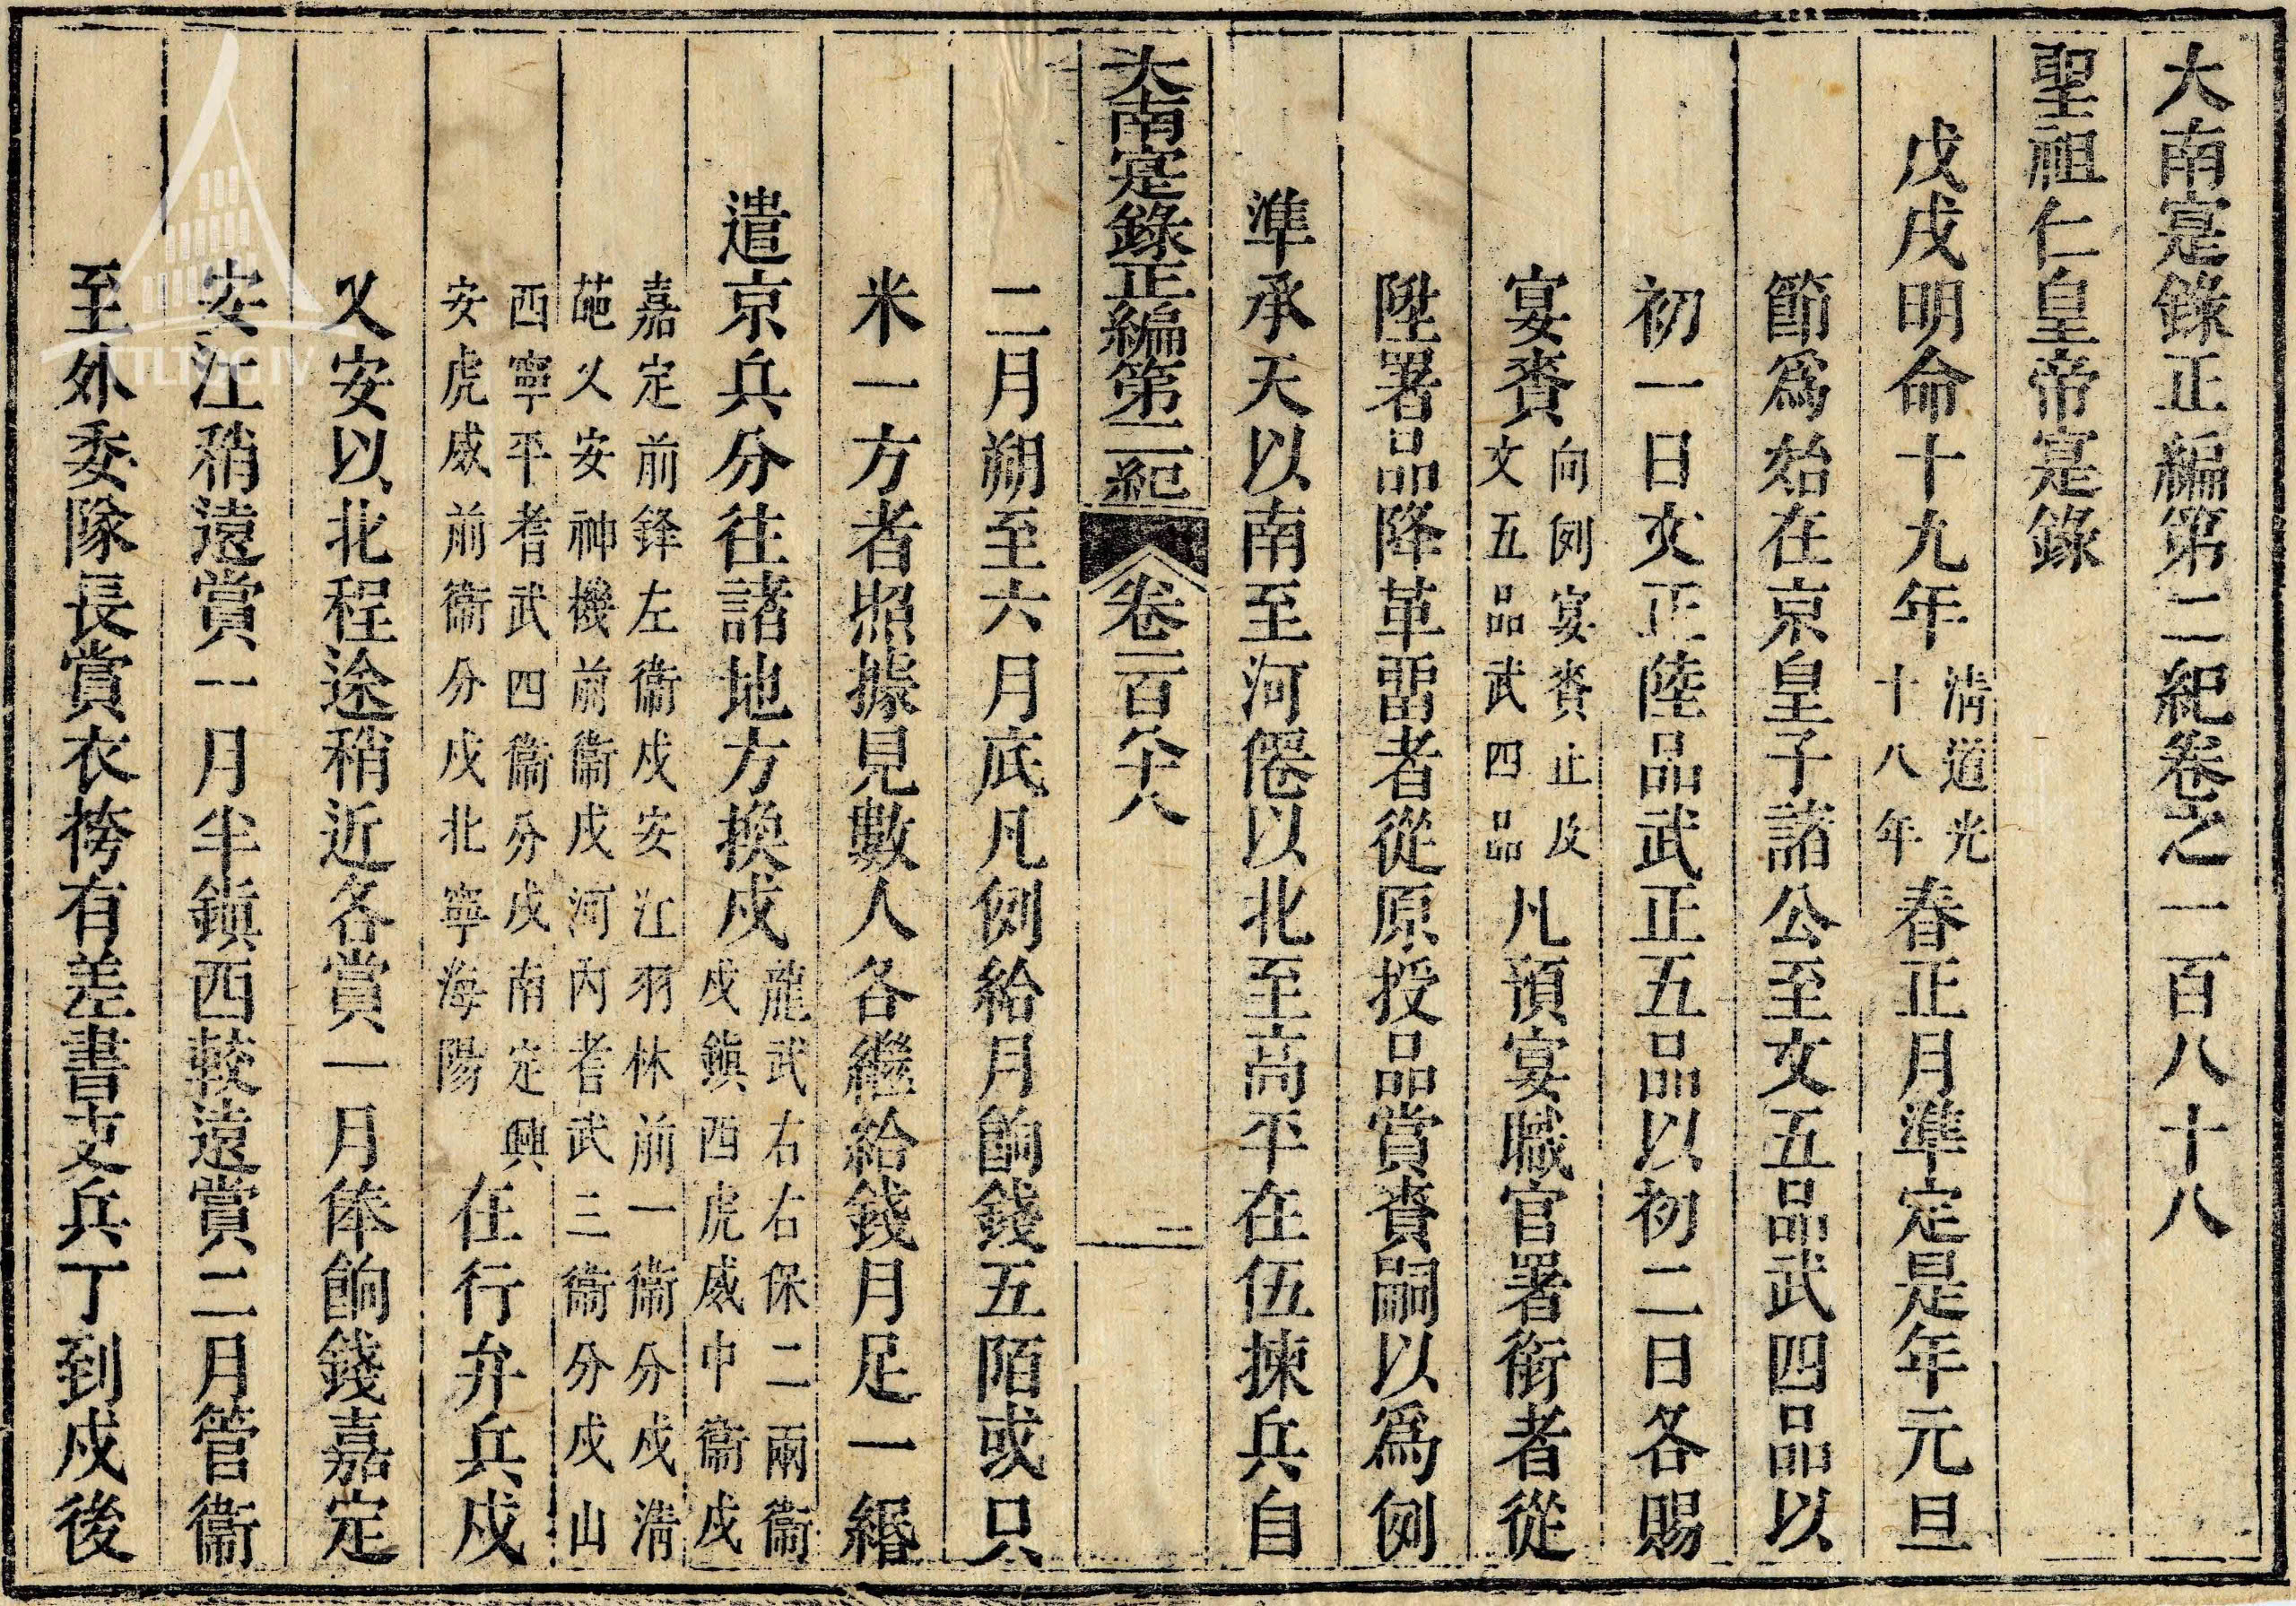 大南寔錄正編第二紀卷之一百八十八
聖祖仁皇帝寔錄
戊戌明命十九年清道光十八年春正月準定是年元旦
節爲始在京皇子諸公至文五品武四品以
初一日文正陸品武正五品以初二日各賜
宴賚向例宴賚止及文五品武四品凡預宴職官署銜者從
陞署品降革畱者從原授品賞賚嗣以爲例
準承天以南至河僊以北至高平在伍揀兵自
大南寔錄正編第二紀 卷一百八十八 一
二月朔至六月底凡例給月餉錢五陌或只
米一方者照據見數人各繼給錢月足一緡
遣京兵分往諸地方換戍龍武右右保二兩衞戍鎮西虎威中衞戍
嘉定前鋒左衞戍安江羽林前一衞分戍清葩乂安神機前衞戍河內耆武三衞分戍山
西寧平耆武四衞分戍南定興安虎威前衞分戍北寧海陽在行弁兵戍
乂安以北程途稍近各賞一月俸餉錢嘉定
安江稍遠賞一月半鎮西較遠賞二月管衞
至外委隊長賞衣袴有差書吏兵丁到戍後
TTLTQG IV